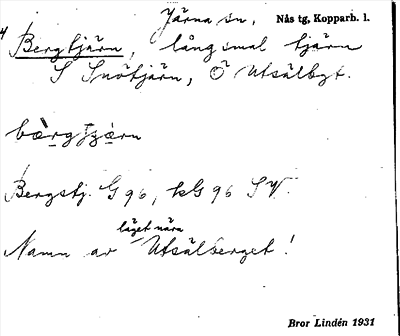 Järna sn, Nås tg, Kopparb. l.
4
Bergtjärn, långsmal tjärn
S Snötjärn, Ö Utsälbgt.
Bergstj. G 96, kG 96 SV.
läget nära
Namn av Utsälberget!
Bror Lindén 1931